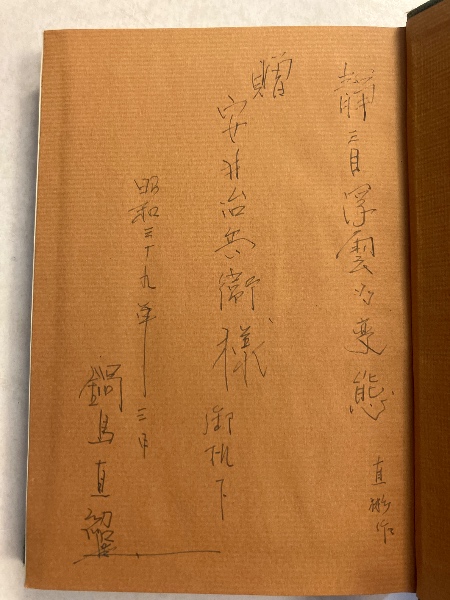 静看浮雲変態
直彬作
贈
安井治兵衛様 御机下
昭和三十九年三月
鍋島直紹